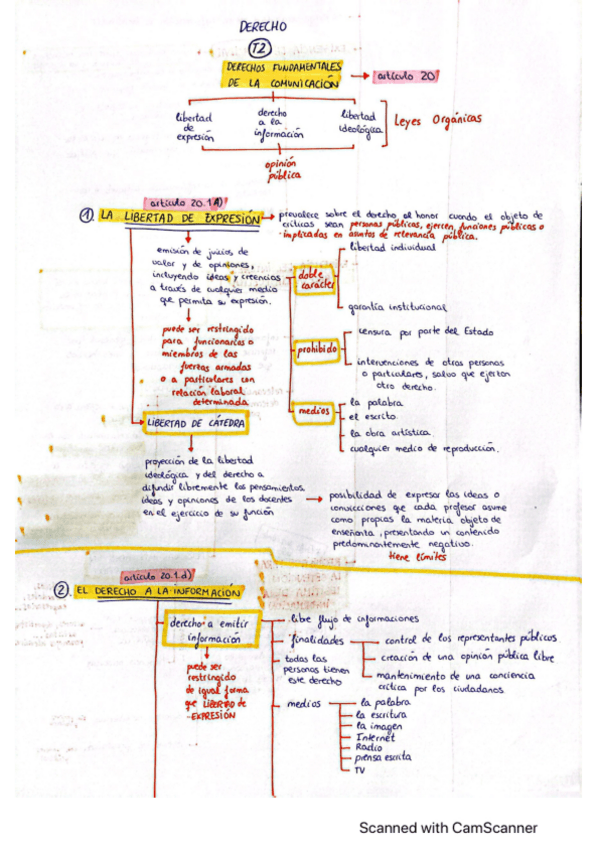 DERECHO
T2
DERECHOS FUNDAMENTALES
DE LA COMUNICACIÓN
artículo 20
libertad
de
expresión
derecho
a la
información
libertad
ideológica
Leyes Orgánicas
opinión
pública
artículo 20.1 A)
1. LA LIBERTAD DE EXPRESIÓN
prevalece sobre el derecho al honor cuando el objeto de
críticas sean personas públicas, ejercen funciones públicas o
implicadas en asuntos de relevancia pública.
emisión de juicios de
valor y de opiniones,
incluyendo ideas y creencias
a través de cualquier medio
que permita su expresión.
doble
carácter
libertad individual
garantía institucional
puede ser restringido
para funcionarios o
miembros de las
fuerzas armadas
o a particulares con
relación laboral
determinada
prohibido
censura por parte del Estado
intervenciones de otras personas
o particulares, salvo que ejerzan
otro derecho.
medios
la palabra
el escrito.
la obra artística.
cualquier medio de reproducción.
LIBERTAD DE CÁTEDRA
proyección de la libertad
ideológica y del derecho a
difundir libremente los pensamientos
ideas y opiniones de los docentes
en el ejercicio de su función
posibilidad de expresar las ideas o
convicciones que cada profesor asume
como propias la materia objeto de
enseñanza, presentando un contenido
predominantemente negativo.
tiene límites
artículo 20.1.d)
2. EL DERECHO A LA INFORMACIÓN
derecho a emitir
información
puede ser
restringido
de igual forma
que LIBERTAD de
EXPRESIÓN
libre flujo de informaciones
finalidades
control de los representantes públicos
creación de una opinión pública libre
mantenimiento de una conciencia
crítica por los ciudadanos.
todas las
personas tienen
este derecho
medios
la palabra
la escritura
la imagen
Internet
Radio
prensa escrita
TV
Scanned with CamScanner